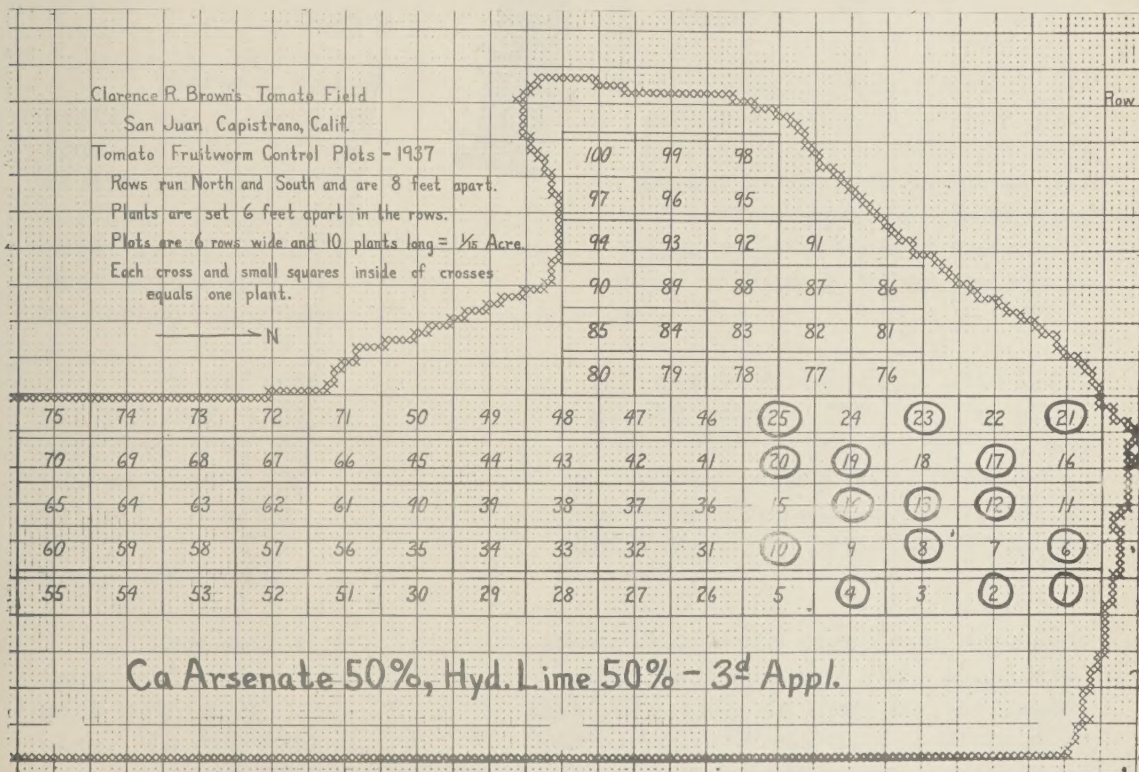 Row
Clarence R. Brown's Tomato Field
San Juan Capistrano, Calif.
Tomato Fruitworm Control Plots - 1937
Rows run North and South and are 8 feet apart.
Plants are set 6 feet apart in the rows.
Plots are 6 rows wide and 10 plants long = 1/15 Acre.
Each cross and small squares inside of crosses
equals one plant.
N
100 99 98
97 96 95
94 93 92 91
90 89 88 87 86
85 84 83 82 81
80 79 78 77 76
75 74 73 72 71 50 49 48 47 46 25 24 23 22 21
70 69 68 67 66 45 44 43 42 41 20 19 18 17 16
65 64 63 62 61 40 39 38 37 36 15 14 13 12 11
60 59 58 57 56 35 34 33 32 31 10 9 8 7 6
55 54 53 52 51 30 29 28 27 26 5 4 3 2 1
Ca Arsenate 50%, Hyd. Lime 50% - 3d Appl.